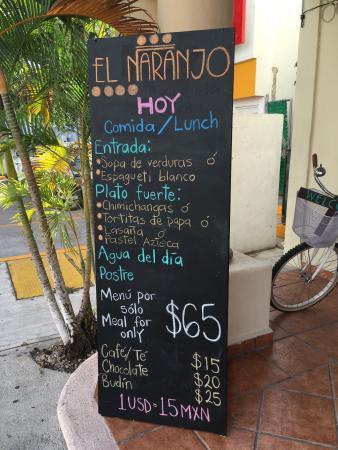 EL NARANJO
HOY
Comida/Lunch
Entrada:
Sopa de verduras ó
Espagueti blanco
Plato fuerte:
Chimichangas ó
Tortitas de papa ó
Lasaña ó
Pastel Azteca
Agua del día
Postre
Menú por
sólo
Meal for
only
$65
Café/Té $15
Chocolate $20
Budín $25
1USD=15MXN